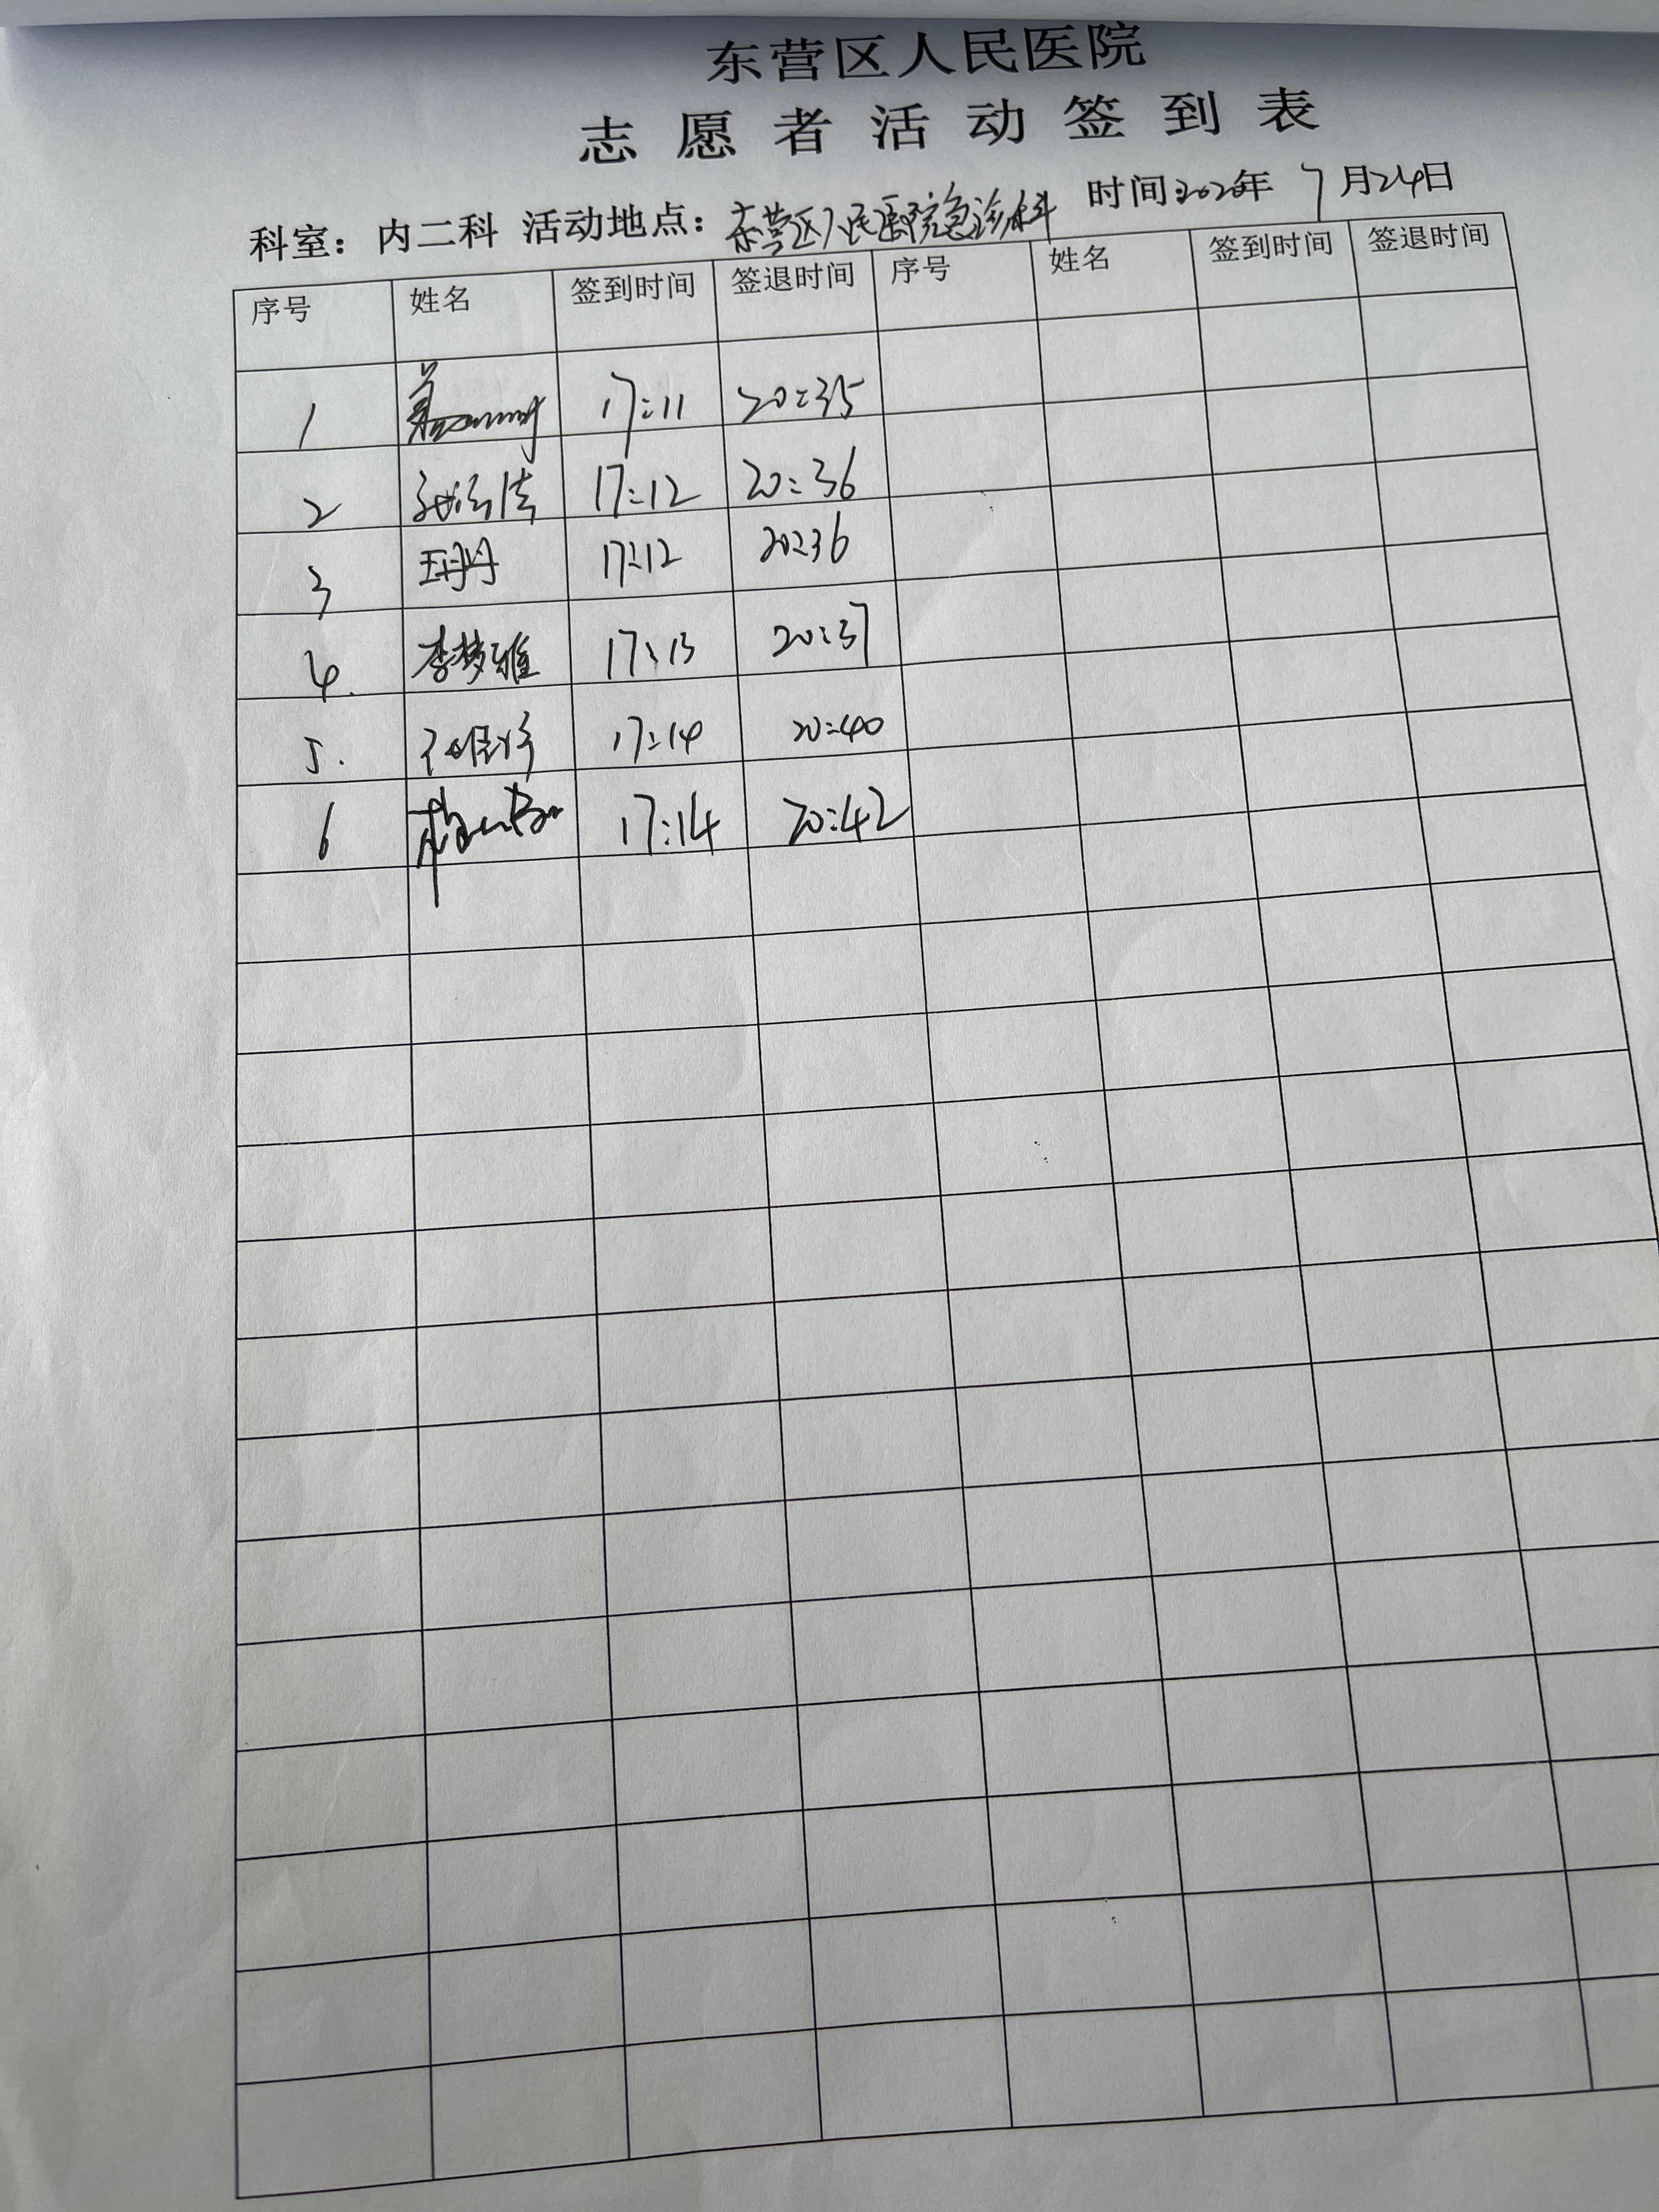 东营区人民医院
志愿者活动签到表
科室：内二科 活动地点：东营区人民医院急诊科 时间:2020年 7月24日
序号 姓名 签到时间 签退时间 序号 姓名 签到时间 签退时间
1 17:11 20:35
2 17:12 20:36
3 王丹丹 17:12 20:36
4. 李梦雅 17:13 20:37
5. 17:14 20:40
6 17:14 20:42